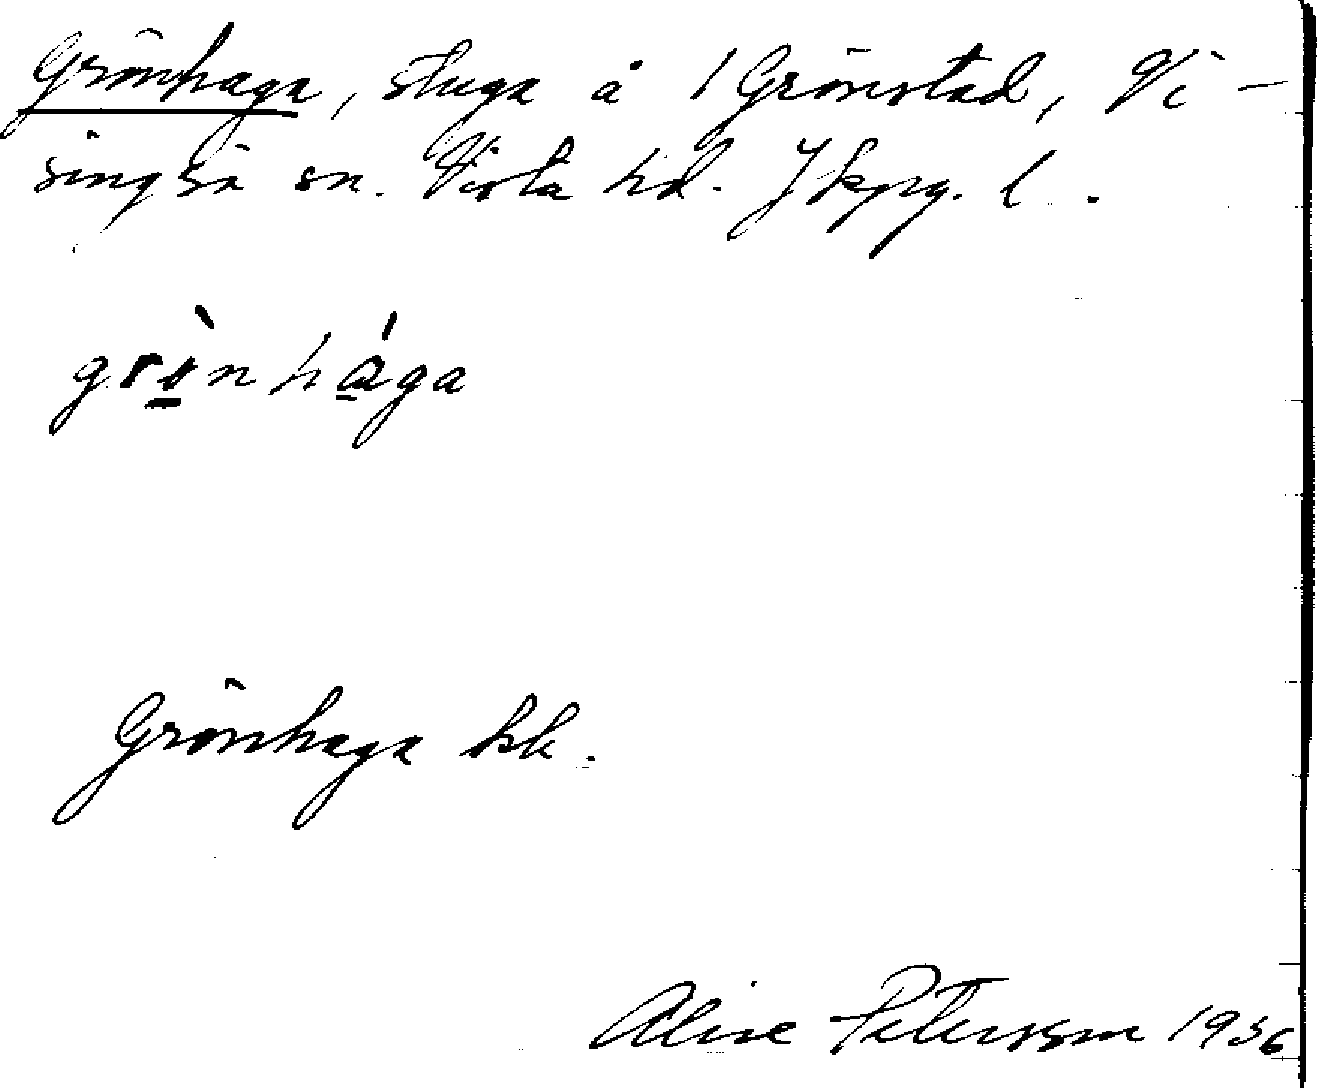 Grönhaga, stuga å 1 Grönstad, Vi-
singsö sn. Vista hd. Jkpg. l.
grö̀nhága
Grönhaga kk.
Petersson 1936